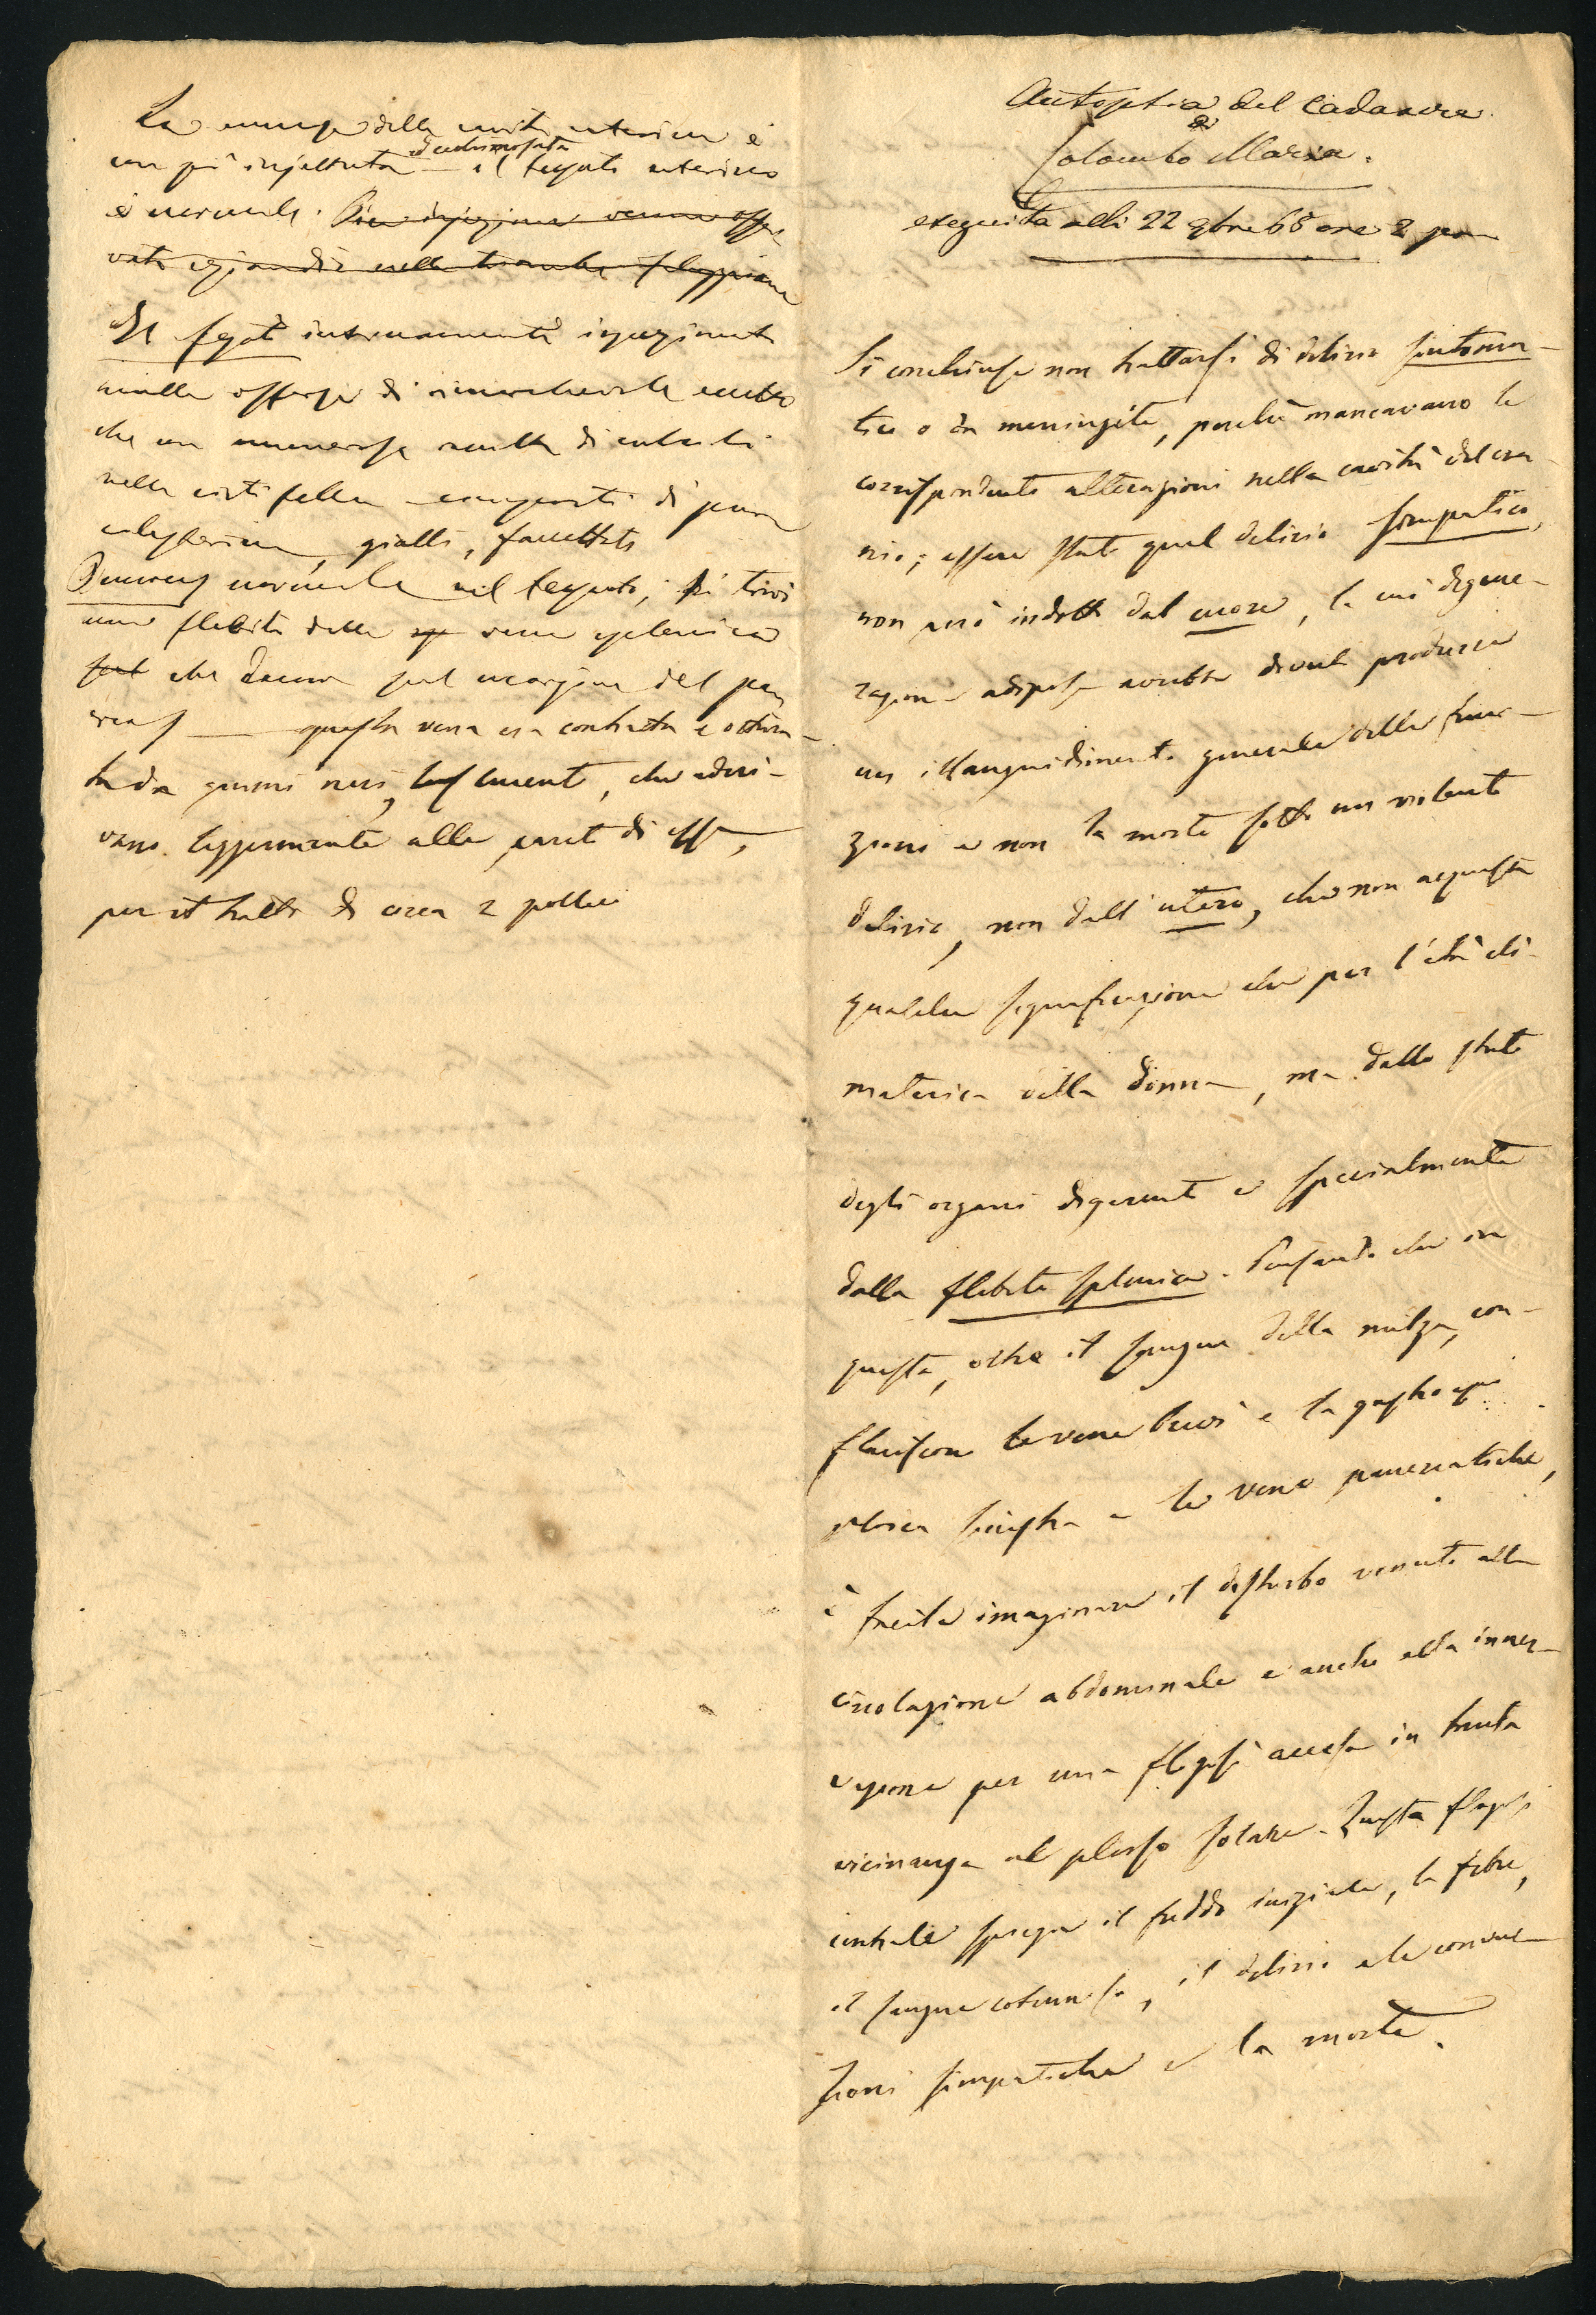 La mucosa della cavità uterina è
un po' injettata ed ecchimosata — il tessuto uterino
è normale. Pari injezione venne osser
vata eziandio nella tromba faloppiana
Il fegato internamente
nulla offerse di rimarchevole eccetto
che una numerosa raccolta di calcoli
nella cisti fellea composti di pura
colesterina, gialli, faccettati
Pancreas normale nel tessuto; si trovò
una flebite della sp vena splenica
sul che decorre sul margine del pan
creas — questa vena era contratta e ottura-
ta da grumi neri, che aderi-
vano leggermente alle pareti di essa,
per il tratto di circa 2 pollici
Autopsia del Cadavere
di
Colombo Maria.
eseguita alli 22 9bre 65 ore 2 pom
Si conchiuse non trattarsi di delirio sintoma-
tico o da meningite, perchè mancavano le
corrispondenti alterazioni nella cavità del cra
nio; essere stato quel delirio simpatico,
non però indotto dal cuore, la cui degene-
razione adiposa avrebbe dovuto produrre
un illanguidimento generale delle fun-
zioni e non la morte sotto un violento
delirio, non dall' utero, che non acquista
qualche significazione che per l'età cli-
materica della donna, ma dallo stato
degli organi digerenti e specialmente
dalla flebite splenica. Pensando che in
questa, oltre il sangue della milza, con-
fluiscon le vene brevi e la gastroepi
ploica sinistra e le vene pancreatiche,
è facile imaginare il disturbo venuto alla
circolazione abdominale e anche alla inner-
vazione per una flogosi accesa in tanta
vicinanza al plesso solare. Questa flogosi
centrale spiega il freddo iniziale, la febre,
il sangue cotennoso, il delirio e le convul-
sioni simpatiche e la morte.